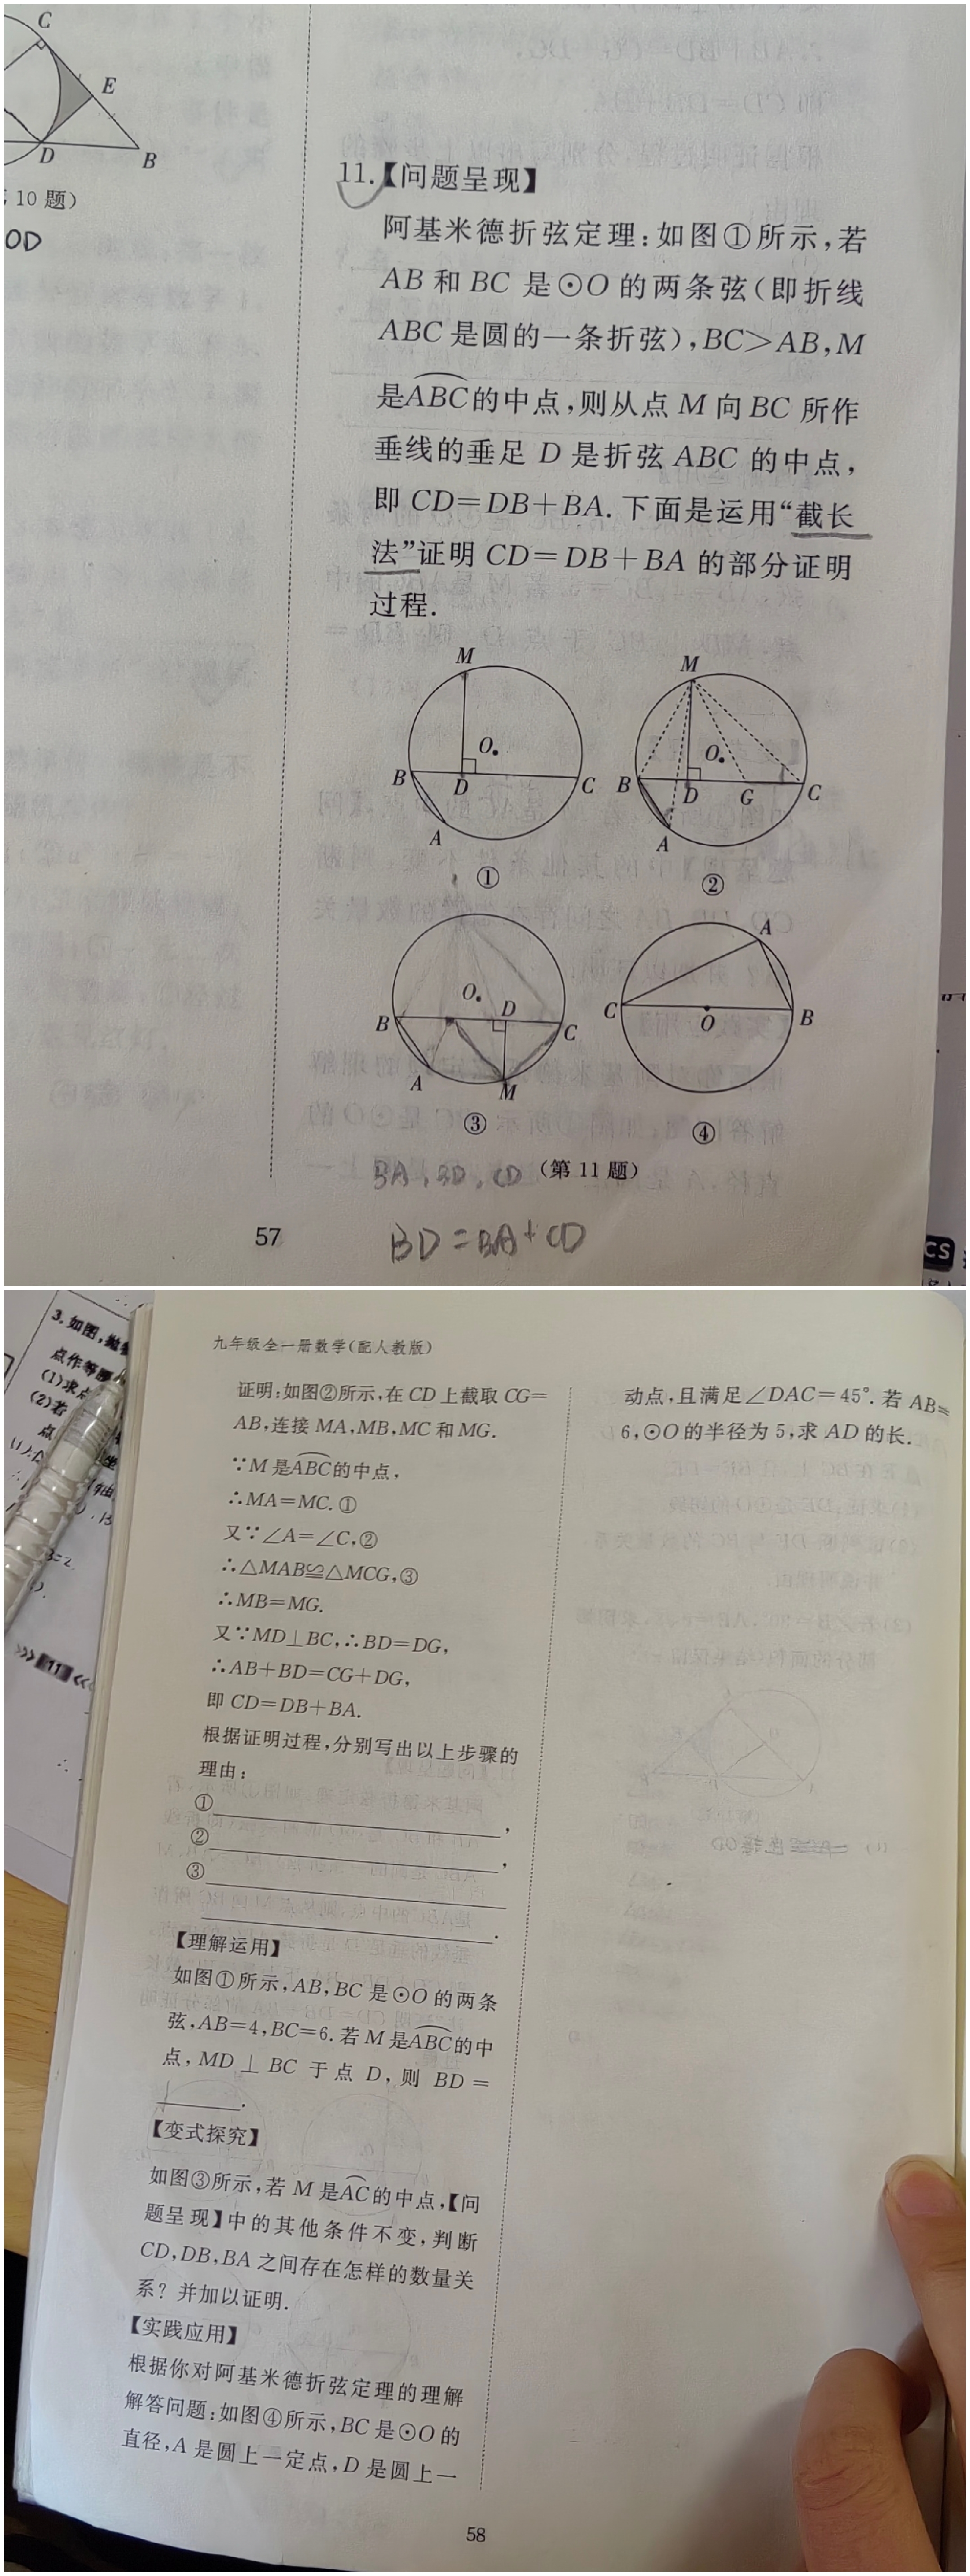 C
E
D
B
10 题)
OD
11.【问题呈现】
阿基米德折弦定理:如图①所示,若
AB 和 BC 是⊙O 的两条弦(即折线
ABC 是圆的一条折弦),BC>AB,M
是ABC的中点,则从点 M 向 BC 所作
垂线的垂足 D 是折弦 ABC 的中点,
即 CD=DB+BA. 下面是运用“截长
法”证明 CD=DB+BA 的部分证明
过程.
M
O
B
D
C
A
①
M
O
B
D
G
C
A
②
O
B
D
C
A
M
③
A
C
O
B
④
(第 11 题)
BA,BD,CD
BD=BA+CD
57
CS
3.如图,抛
点作等
(1)求
(2)若
点
11
九年级全一册数学(配人教版)
证明:如图②所示,在 CD 上截取 CG=
AB,连接 MA,MB,MC 和 MG.
∵M 是ABC的中点,
∴MA=MC.①
又∵∠A=∠C,②
∴△MAB≌△MCG,③
∴MB=MG.
又∵MD⊥BC,∴BD=DG,
∴AB+BD=CG+DG,
即 CD=DB+BA.
根据证明过程,分别写出以上步骤的
理由:
①,
②,
③
.
【理解运用】
如图①所示,AB,BC 是⊙O 的两条
弦,AB=4,BC=6.若 M 是ABC的中
点,MD⊥BC 于点 D,则 BD=
.
【变式探究】
如图③所示,若 M 是AC的中点,【问
题呈现】中的其他条件不变,判断
CD,DB,BA 之间存在怎样的数量关
系?并加以证明.
【实践应用】
根据你对阿基米德折弦定理的理解
解答问题:如图④所示,BC 是⊙O 的
直径,A 是圆上一定点,D 是圆上一
动点,且满足∠DAC=45°.若 AB=
6,⊙O的半径为 5,求 AD 的长.
58